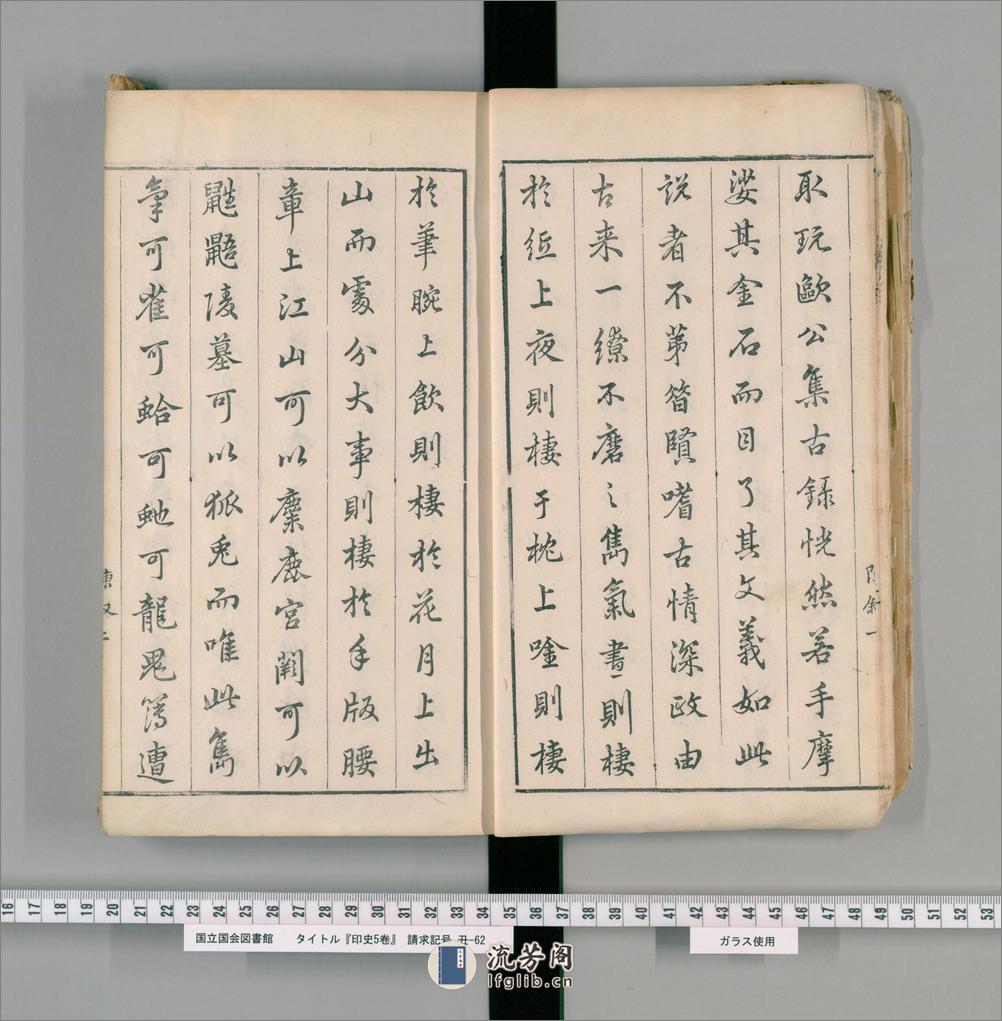 取玩歐公集古錄恍然若手摩
娑其金石而目了其文義如此
說者不第昝賢嗜古情深政由
古来一繚不磨之雋氣晝則棲
於紙上夜則棲于枕上唫則棲
於筆腕上飲則棲於花月上出
山而處分大事則棲於手版腰
章上江山可以麋鹿宮闕可以
鼪鼯陵墓可以狐兔而唯此雋
氣可雀可蛤可虵可龍鬼篤遭
国立国会図書館 タイトル『印史5巻』 請求記号 丑-62
ガラス使用
流芳阁
lfglib.cn
16 17 18 19 20 21 22 23 24 25 26 27 28 29 30 31 32 33 34 35 36 37 38 39 40 41 42 43 44 45 46 47 48 49 50 51 52 53